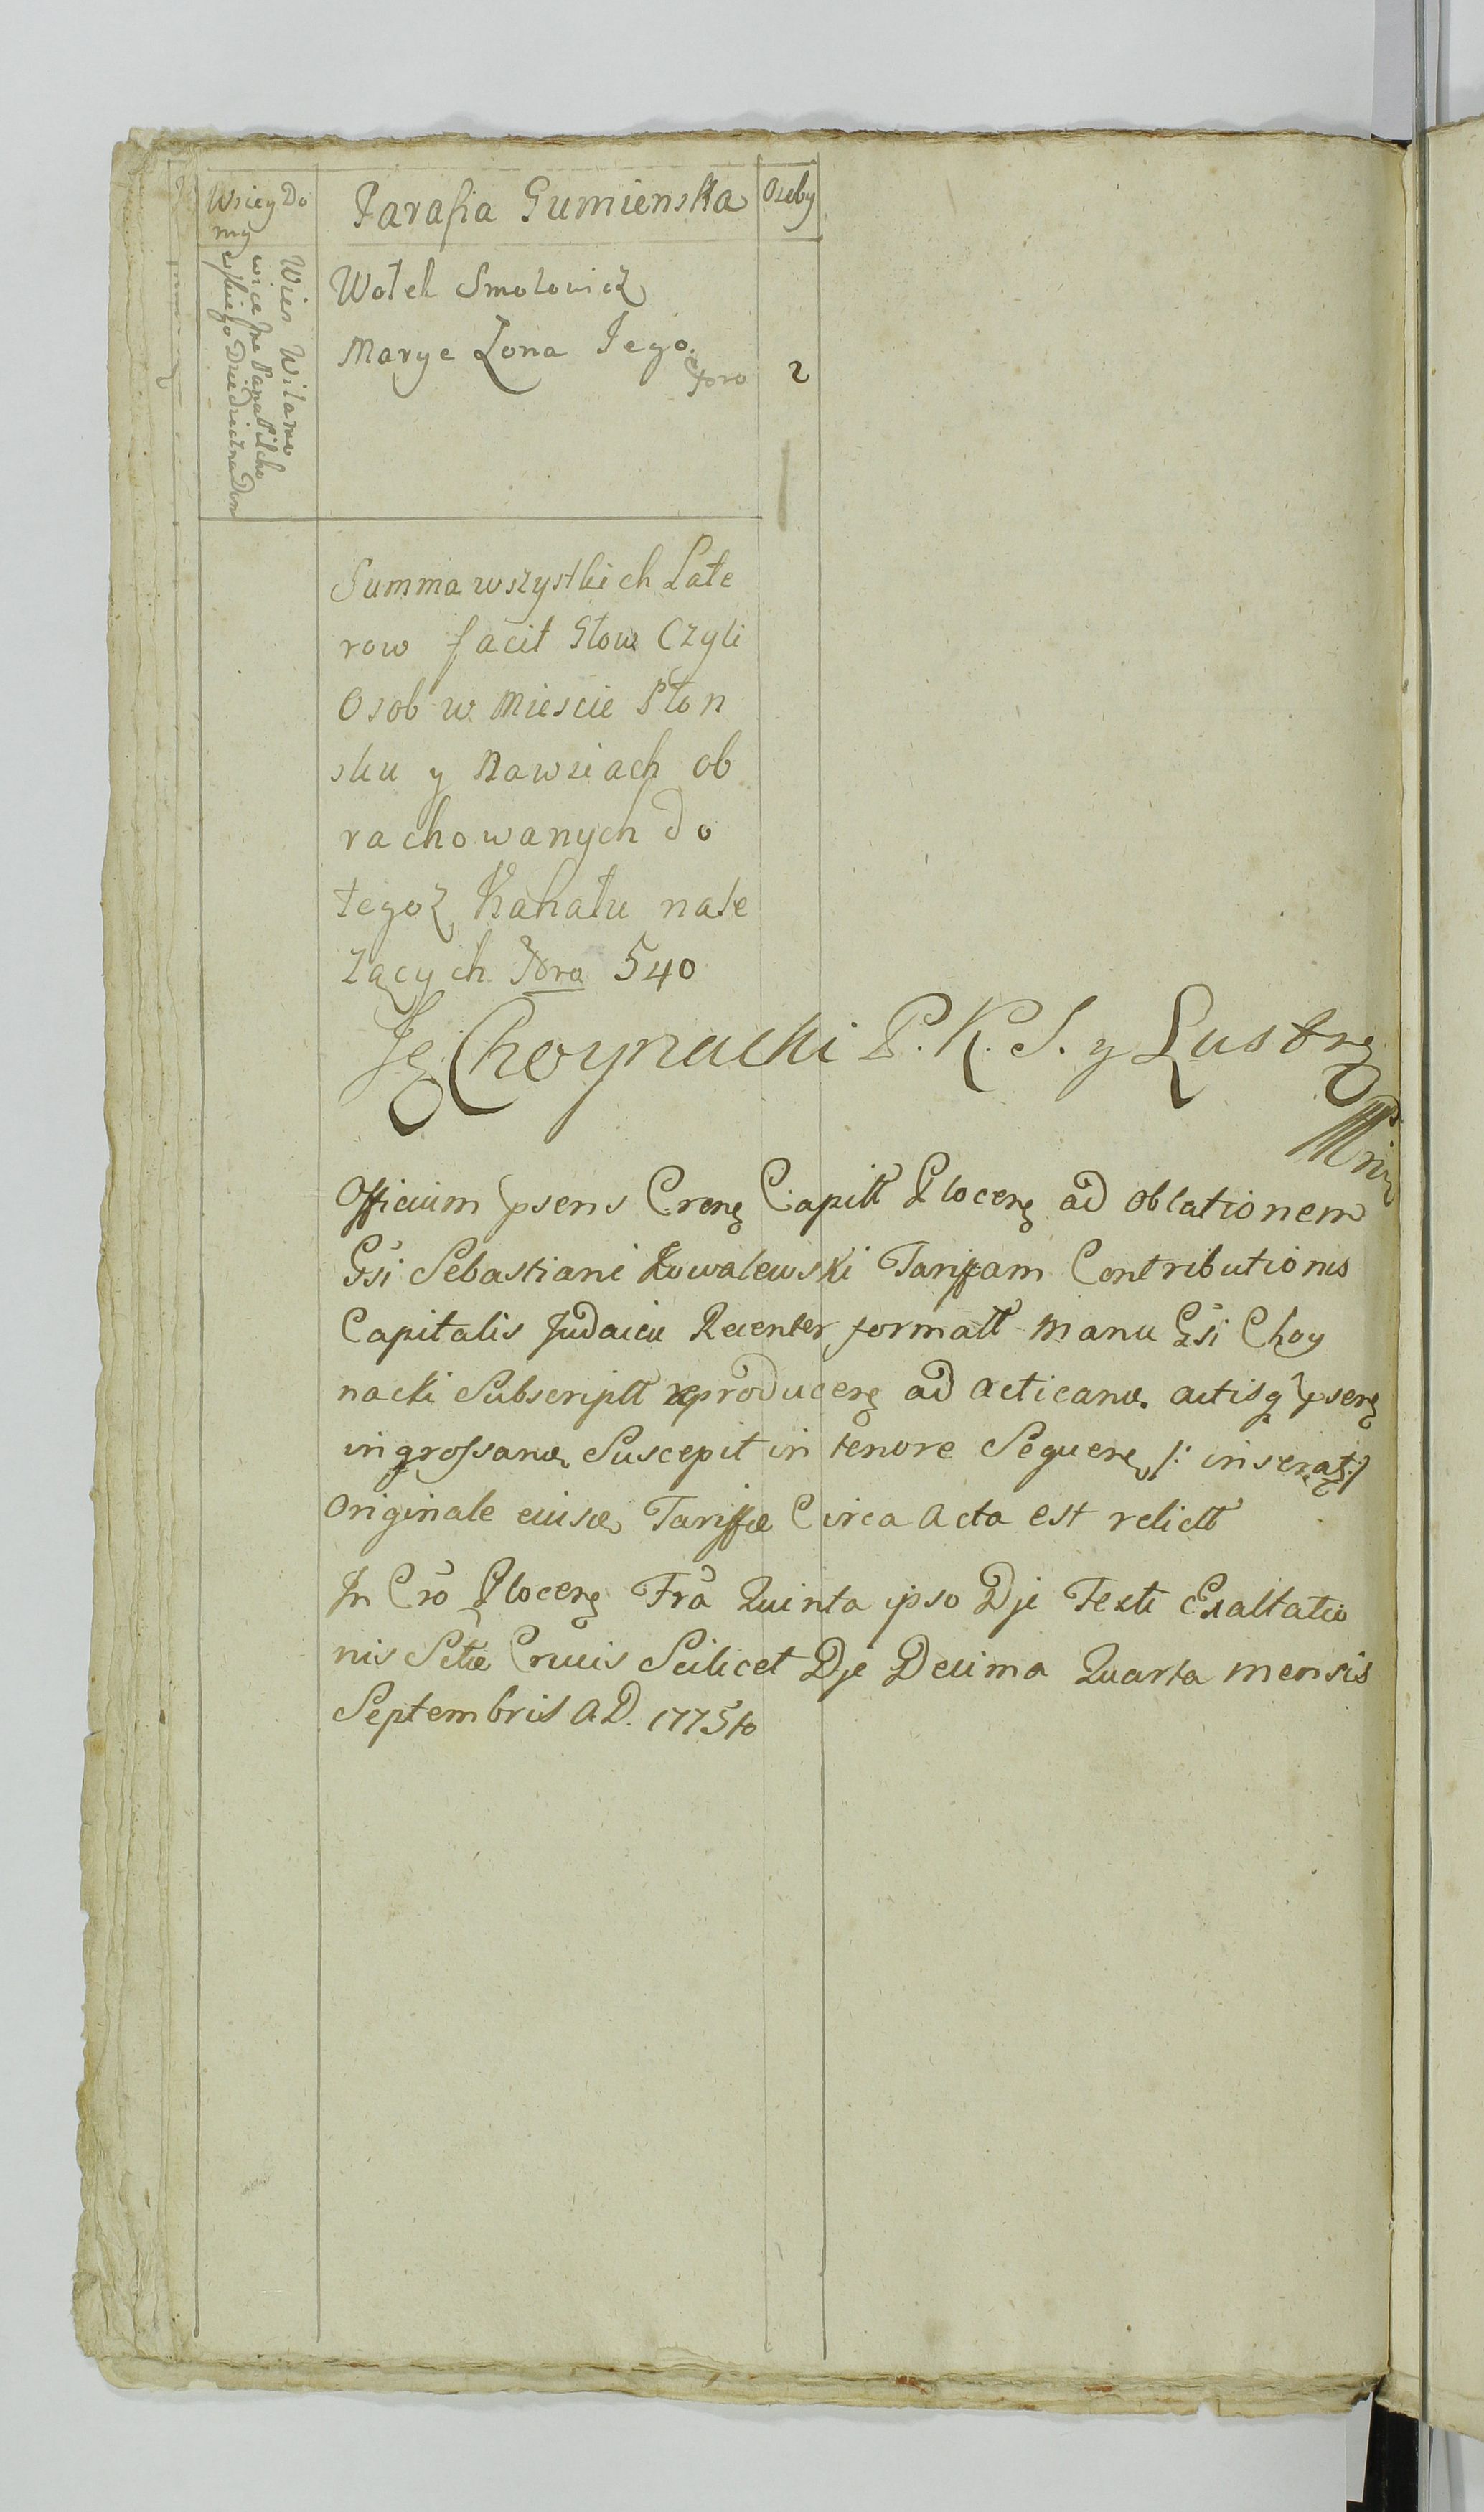 Wsiey Do
my
Parafia Gumienska
Osoby
Wies Wilamo
wice Jne Pana Pilcho
wskiego Dziedziczna Dom
Wolek Smolowicz
Marye Zona Jego
Nro 2
Summa wszystkich Late
row facit Glow Czyli
Osob w Miescie Plon
sku y Nawsiach ob
rachowanych do
tegoz Kahału nale
zących Nro 540
Choynacki P. K. S. y Lustr
Officium psens Crens Capitt Plocens ad oblationem
Gsi Sebastiani Kowalewski Tariffam Contributionis
Capitalis Judaicu Recenter formatt manu Gsi Choy
nacki Subscriptt reproducens ad acticand. actisq psens
ingrossand Suscepit in tenore Sequens /: inserat:/
Originale eiusd Tariffæ Circa Acta est relictt
In Cro Plocens Fra Quinta ipso Die Festi Exaltatio
nis Sctæ Crucis Scilicet Die Decima Quarta mensis
Septembris A.D. 1775to